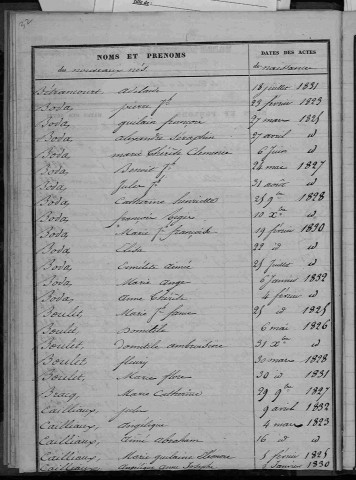 NOMS ET PRENOMS DATES DES ACTES
de nouveaux nés de naissance
Betrancourt, adelaide 18 juillet 1831
Boda, pierre f.s 23 février 1823
Boda, guilain 27 mars 1825
Boda, alexandre Séraphin 27 avril id
Boda, marie thérèse Clemence 6 juin id
Boda, Benoit f.s 24 mai 1827
Boda, Jules f.s 31 août id
Boda, Catharine henriette 25 9.bre 1828
Boda, françois 10 X.bre id
Boda, Marie f.se françoise 19 février 1830
Boda, 22 id id
Boda, aimée 25 juillet id
Boda, Marie ange 6 janvier 1832
Boda, anne thérèse 4 février id
Boulet, Marie f.se 25 id 1825
Boulet, Domitile 6 mai 1826
Boulet, Domitile ambroisine 31 X.bre id
Boulet, fleury 30 mars 1828
Boulet, Marie flore 30 id 1831
Marie Catherine 29 9.bre 1827
Cailliaux, jules 9 avril 1832
Cailliaux, angelique 4 mars 1823
Cailliaux, aimé abraham 16 id id
Cailliaux, Marie guilaine 5 février 1825
Cailliaux, anne Joseph janvier 1830